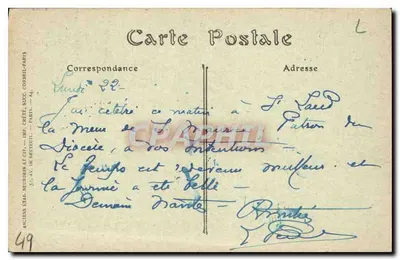 Carte Postale
Correspondance
Adresse
Lundi 22-
J'ai célébré ce matin à St Laud
la messe de St Maurice Patron du
Diocèse, à vos intentions.
Le temps est redevenu meilleur et
la journée a été belle
Demain Nantes
Amitiés
49
L
CPARAMA